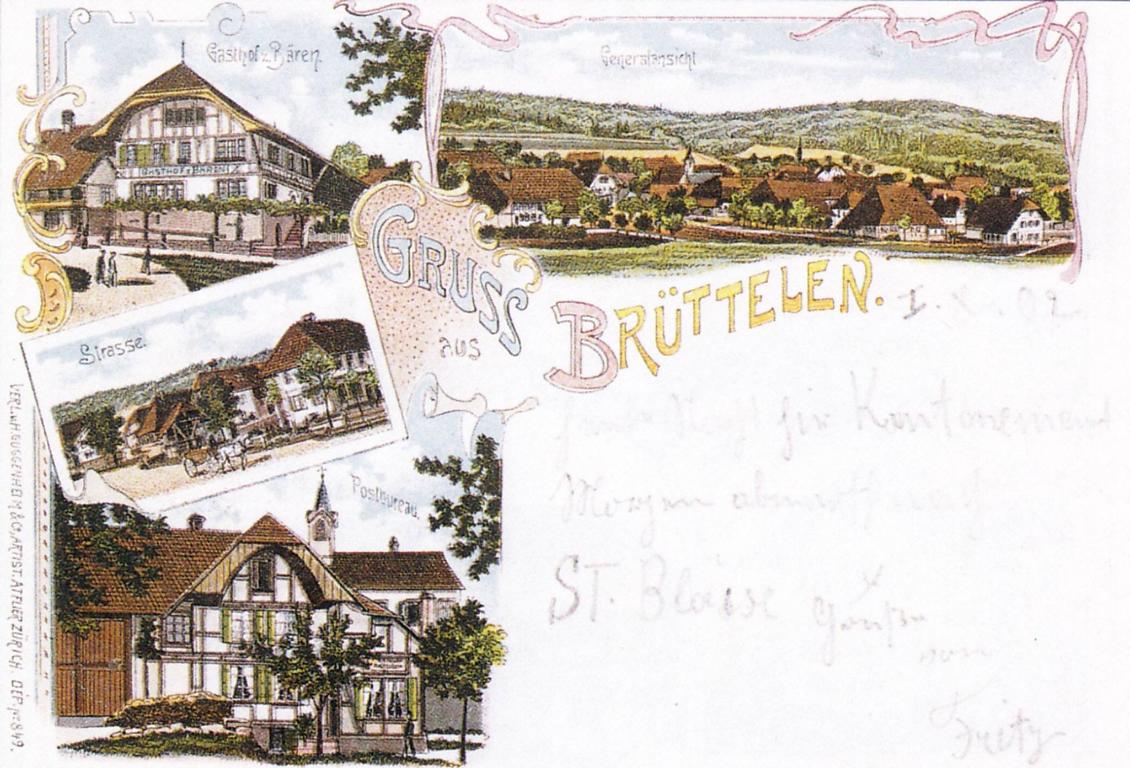 Gasthof z. Bären.
GASTHOF Z. BÄREN
Generalansicht
GRUSS
AUS
BRÜTTELEN.
Strasse.
Postbureau.
VERL. v. H. GUGGENHEIM & Co, ARTIST. ATELIER ZÜRICH DÉP. No 849.
02.
für Kantonement
Morgen abmarsch nach
ST. Blaise
von
Fritz